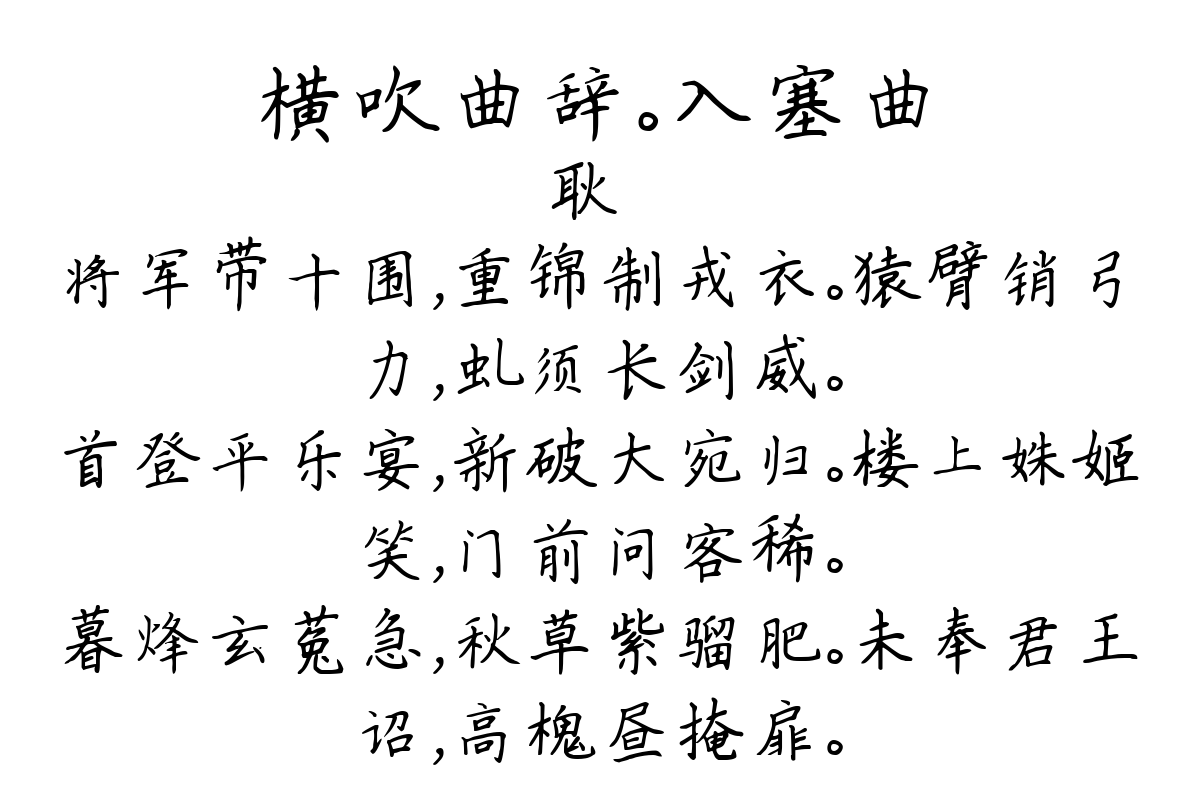 横吹曲辞。入塞曲
耿
将军带十围,重锦制戎衣。猿臂销弓
力,虬须长剑威。
首登平乐宴,新破大宛归。楼上姝姬
笑,门前问客稀。
暮烽玄菟急,秋草紫骝肥。未奉君王
诏,高槐昼掩扉。